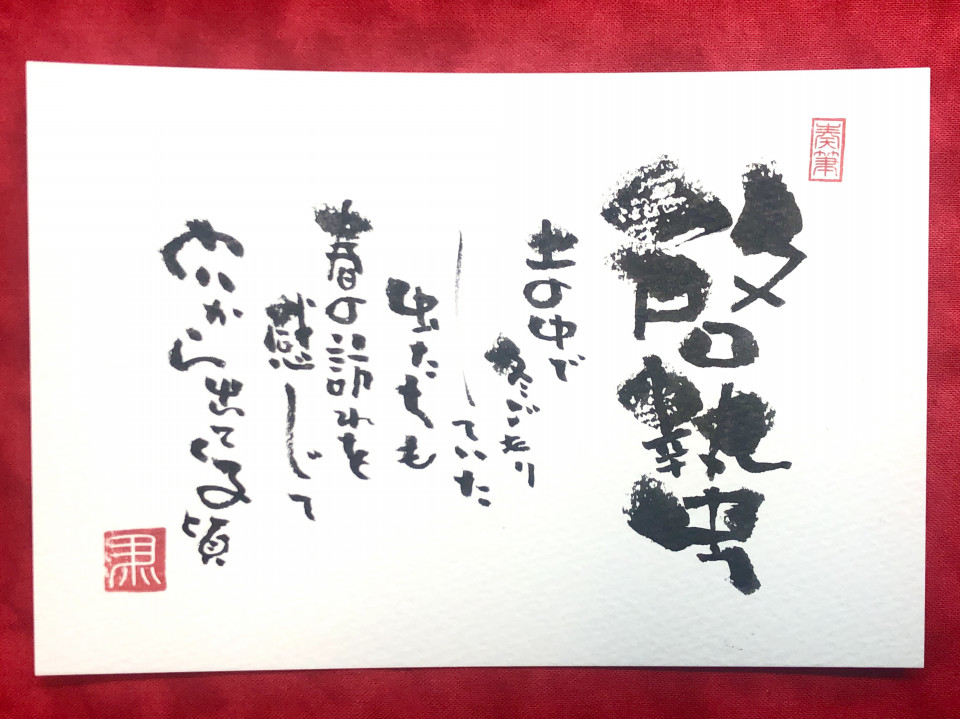 奏筆
啓蟄
土の中で
冬ごもり
していた
虫たちも
春の訪れを
感じて
穴から出てくる頃